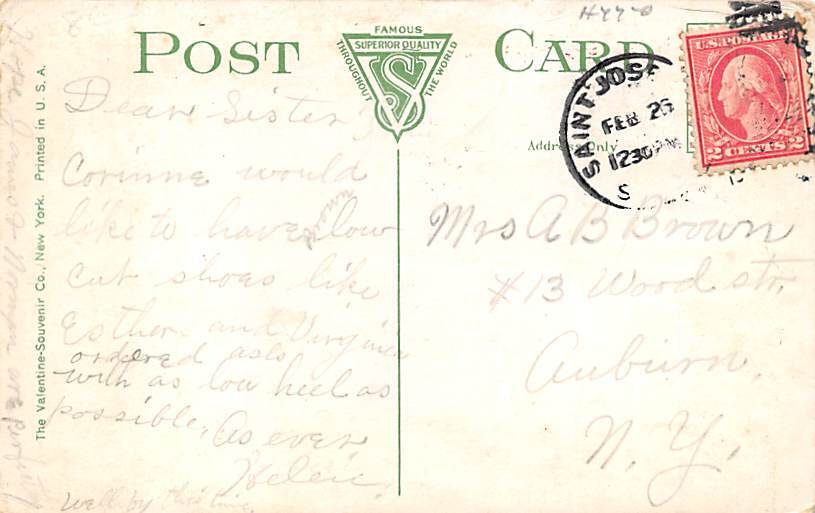 POST CARD
FAMOUS
SUPERIOR QUALITY
THROUGHOUT
THE WORLD
VS
Address Only
H440
U.S. POSTAGE
2 CENTS 2
SAINT JOS
FEB 26
1230PM
Dear Sister
Corinne would
like to have brown low
cut shoes like
Esther and Virginia
ordered also
with as low heel as
possible. As ever
Helen.
Hope Jamo & Naman are perfectly
well by this time.
Mrs A B Brown
#13 Wood str.
Auburn,
N. Y.
The Valentine-Souvenir Co., New York. Printed in U. S. A.